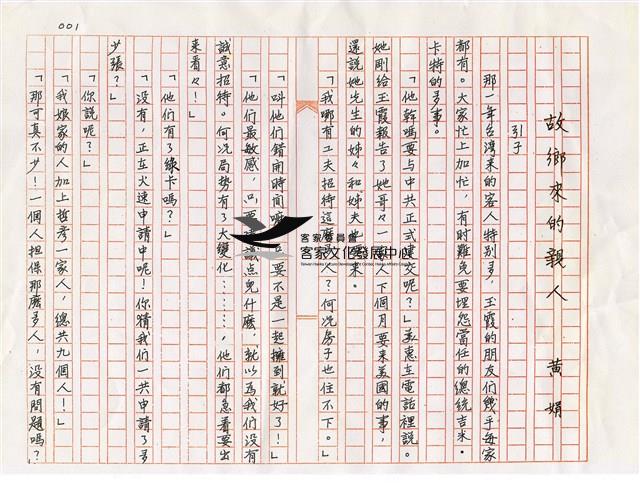 001
故鄉來的親人　黃娟
引子
那一年台灣來的客人特別多，玉霞的朋友們幾乎每家
都有。大家忙上加忙，有時難免要埋怨當任的總統吉米·
卡特的多事。
「他幹嗎要与中共正式建交呢？」惠在電話裡說。
她剛給玉霞報告了她哥々一家人下個月要來美國的事，
還說她先生的姊々和姊夫也要來。
「我哪有工夫招待這麼多人？何況房子也住不下。」
「叫他們錯開時間嘛！要不是一起擁到就好了！」
「他們最敏感，只要建議点兒什麼，就以為我們沒有
誠意招待。何況局勢有了大變化……，他們都急着要出
來看々！」
「他們有了綠卡嗎？」
「没有，正在火速申請中呢！你猜我們一共申請了多
少張？」
「你說呢？」
「我娘家的人加上哲彥一家人，總共九個人！」
「那可真不少！一個人担保那麼多人，没有問題嗎？
客家委員會
客家文化發展中心